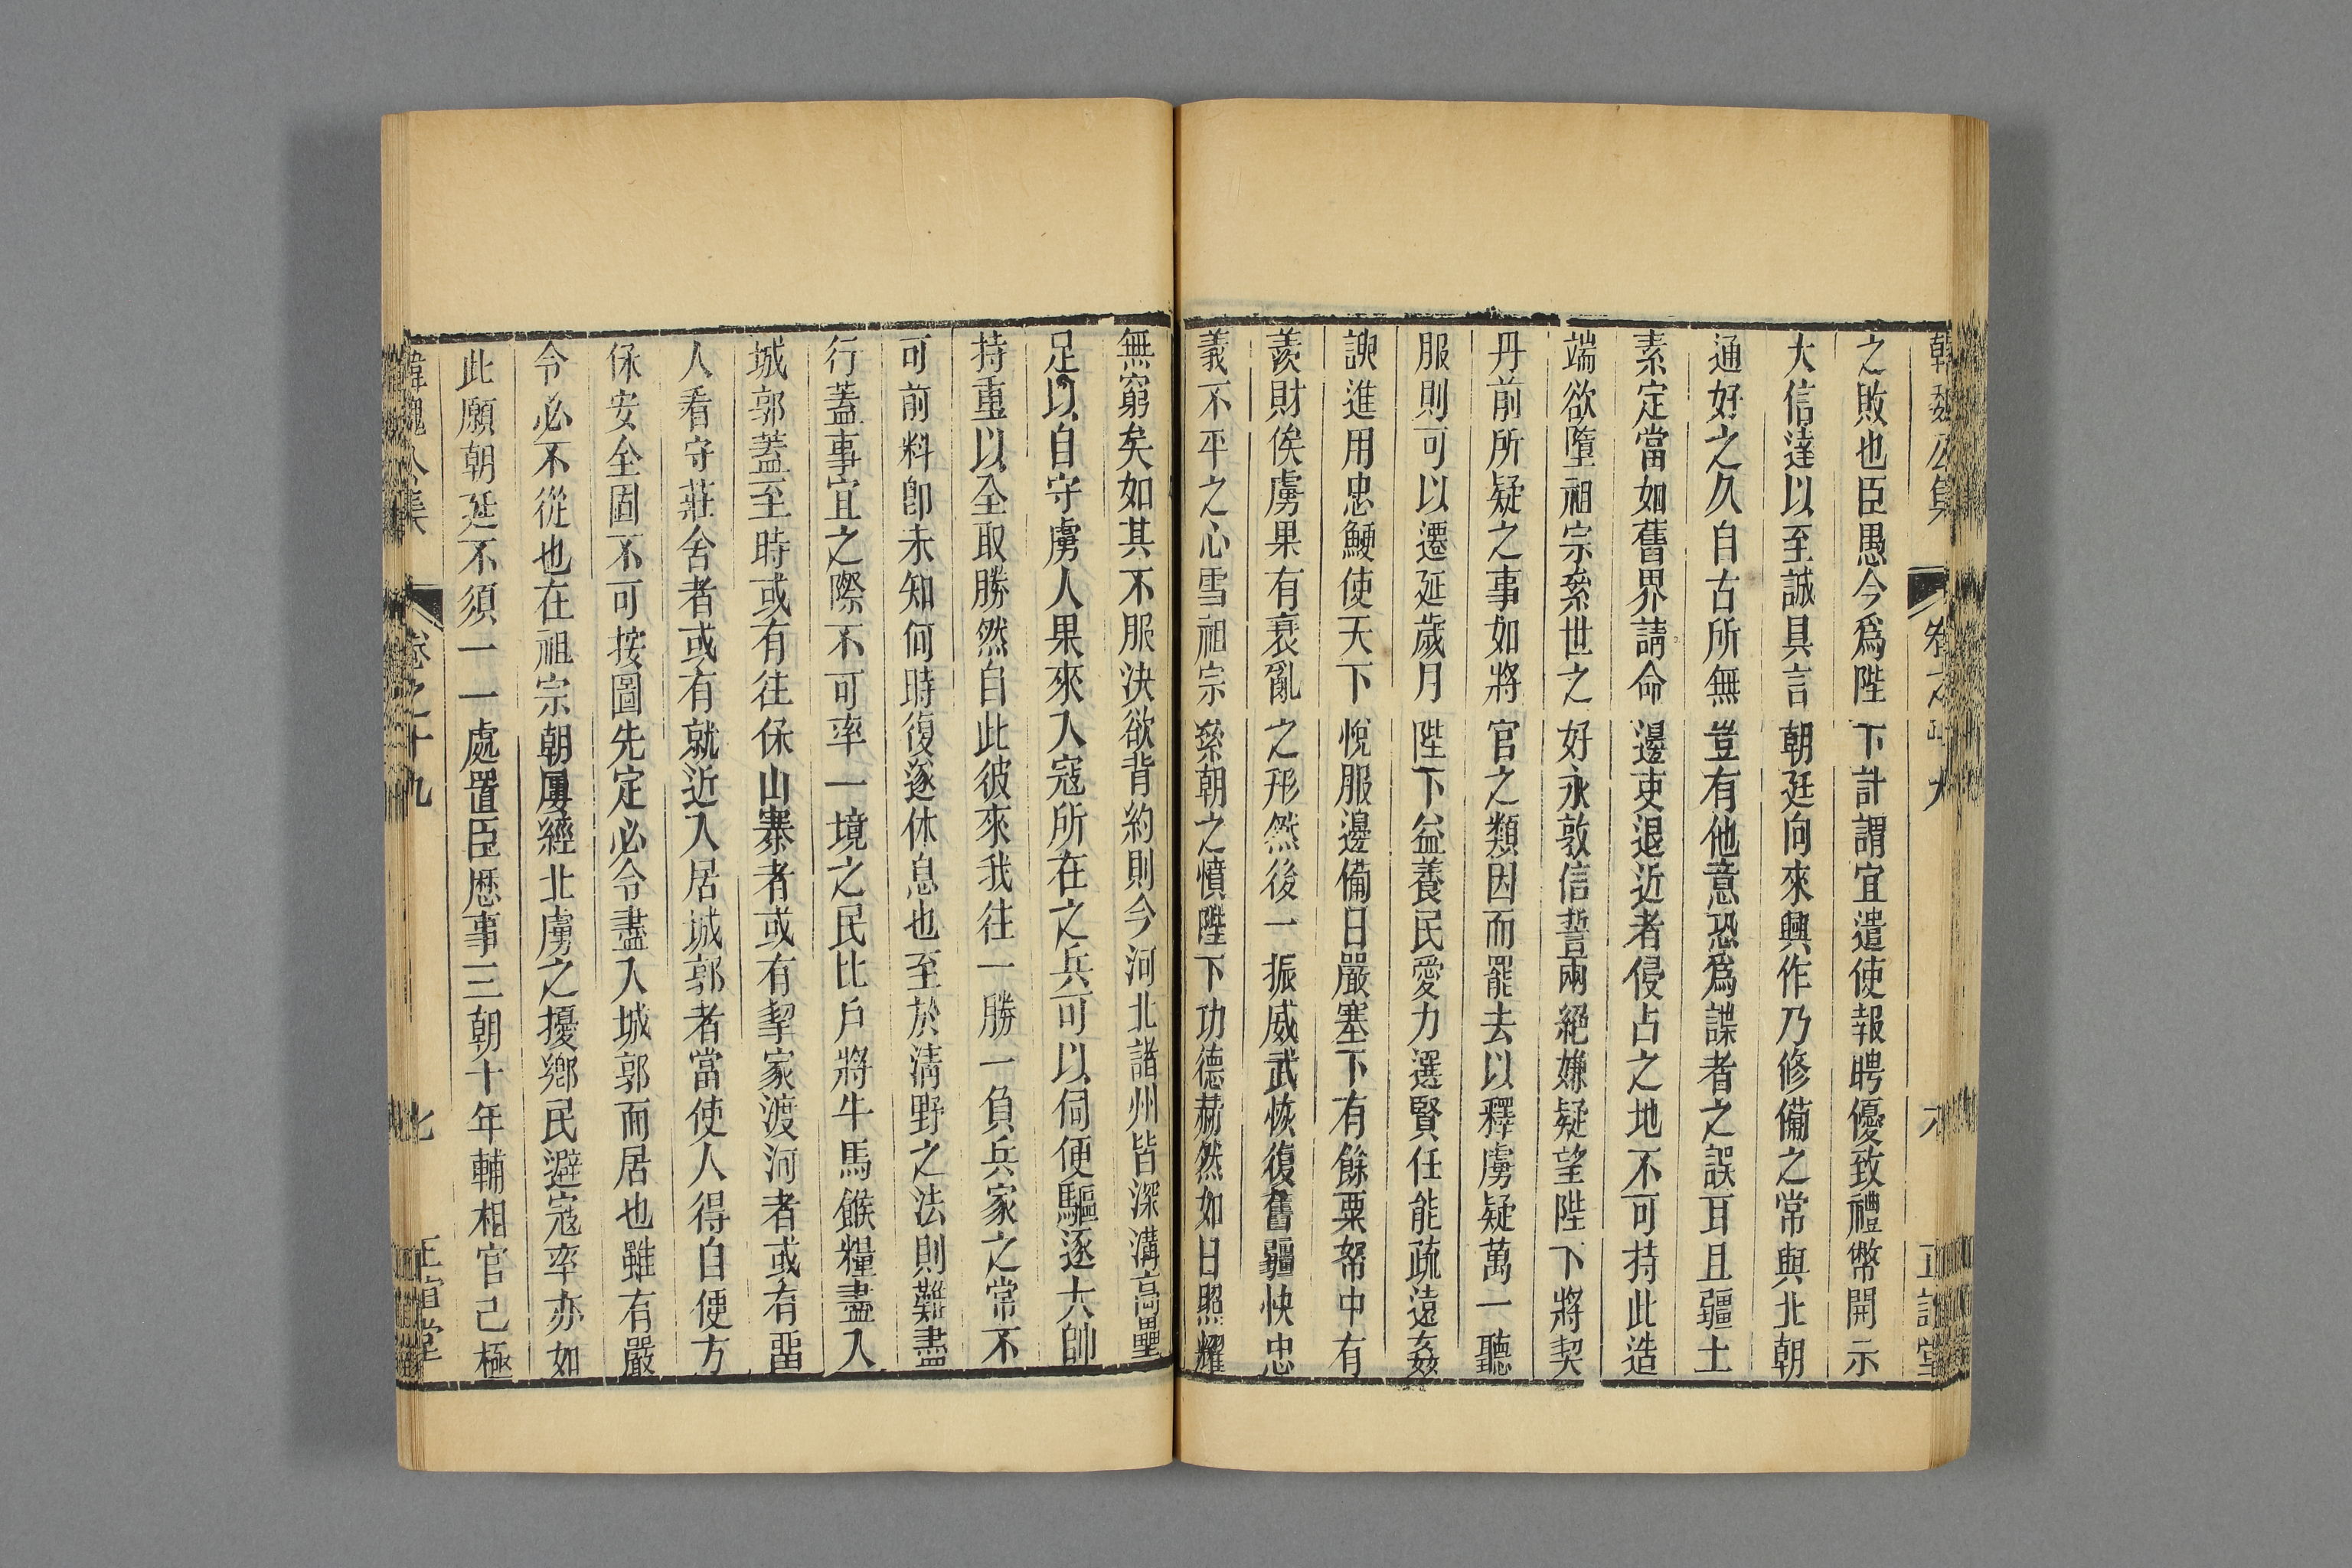 之敗也臣愚今爲陛下計謂宜遣使報聘優致禮幣開示
大信達以至誠具言朝廷向來興作乃修備之常與北朝
通好之久自古所無豈有他意恐爲諜者之誤耳且疆土
素定當如舊界請命邊吏退近者侵占之地不可持此造
端欲墮祖宗絫世之好永敦信誓兩絕嫌疑望陛下將契
丹前所疑之事如將官之類因而罷去以釋虜疑萬一聽
服則可以遷延歲月陛下益養民愛力選賢任能疏遠姦
諛進用忠鯁使天下悅服邊備日嚴塞下有餘粟帑中有
羨財俟虜果有衰亂之形然後一振威武恢復舊疆快忠
義不平之心雪祖宗絫朝之憤陛下功德赫然如日照耀
無窮矣如其不服決欲背約則今河北諸州皆深溝高壘
足以自守虜人果來入寇所在之兵可以伺便驅逐大帥
持重以全取勝然自此彼來我往一勝一負兵家之常不
可前料卽未知何時復遂休息也至於淸野之法則難盡
行蓋事宜之際不可率一境之民比戶將牛馬餱糧盡入
城郭蓋至時或有往保山寨者或有挈家渡河者或有畱
人看守莊舍者或有就近入居城郭者當使人得自便方
保安全固不可按圖先定必令盡入城郭而居也雖有嚴
令必不從也在祖宗朝屢經北虜之擾鄉民避寇率亦如
此願朝廷不須一一處置臣歷事三朝十年輔相官已極
韓魏公集 卷之十九 七 正誼堂